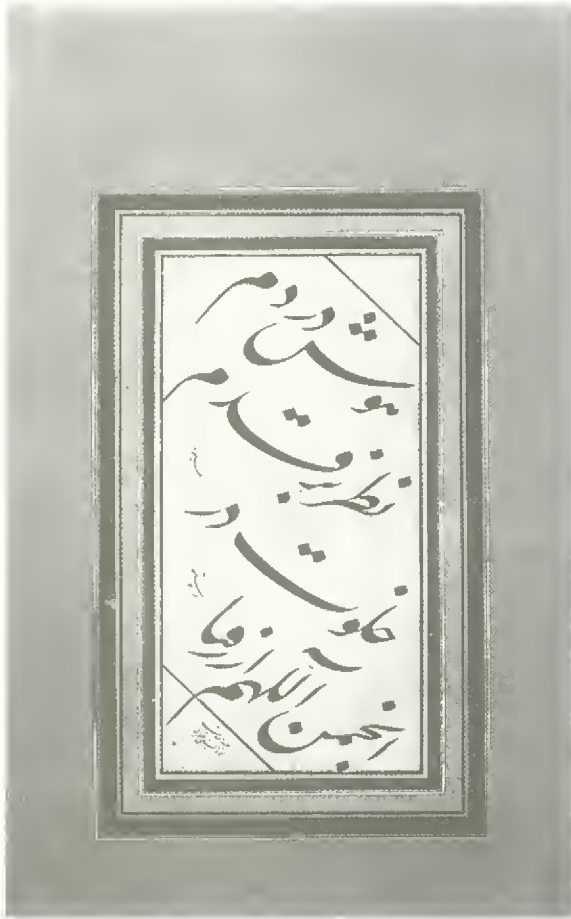 هوش در دم
نظر بر قدم
خلوت در
انجمن اللهم ارزقنا